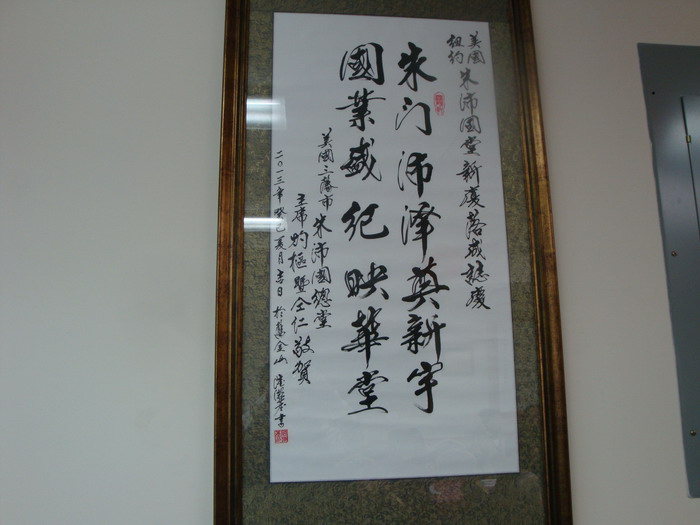 美國
紐約
朱沛國堂新厦落成誌慶
朱门沛澤奠新宇
國業盛紀映華堂
美國三藩市朱沛國總堂
主席灼樞暨仝仁敬賀
二〇一三年癸巳夏月吉日於舊金山